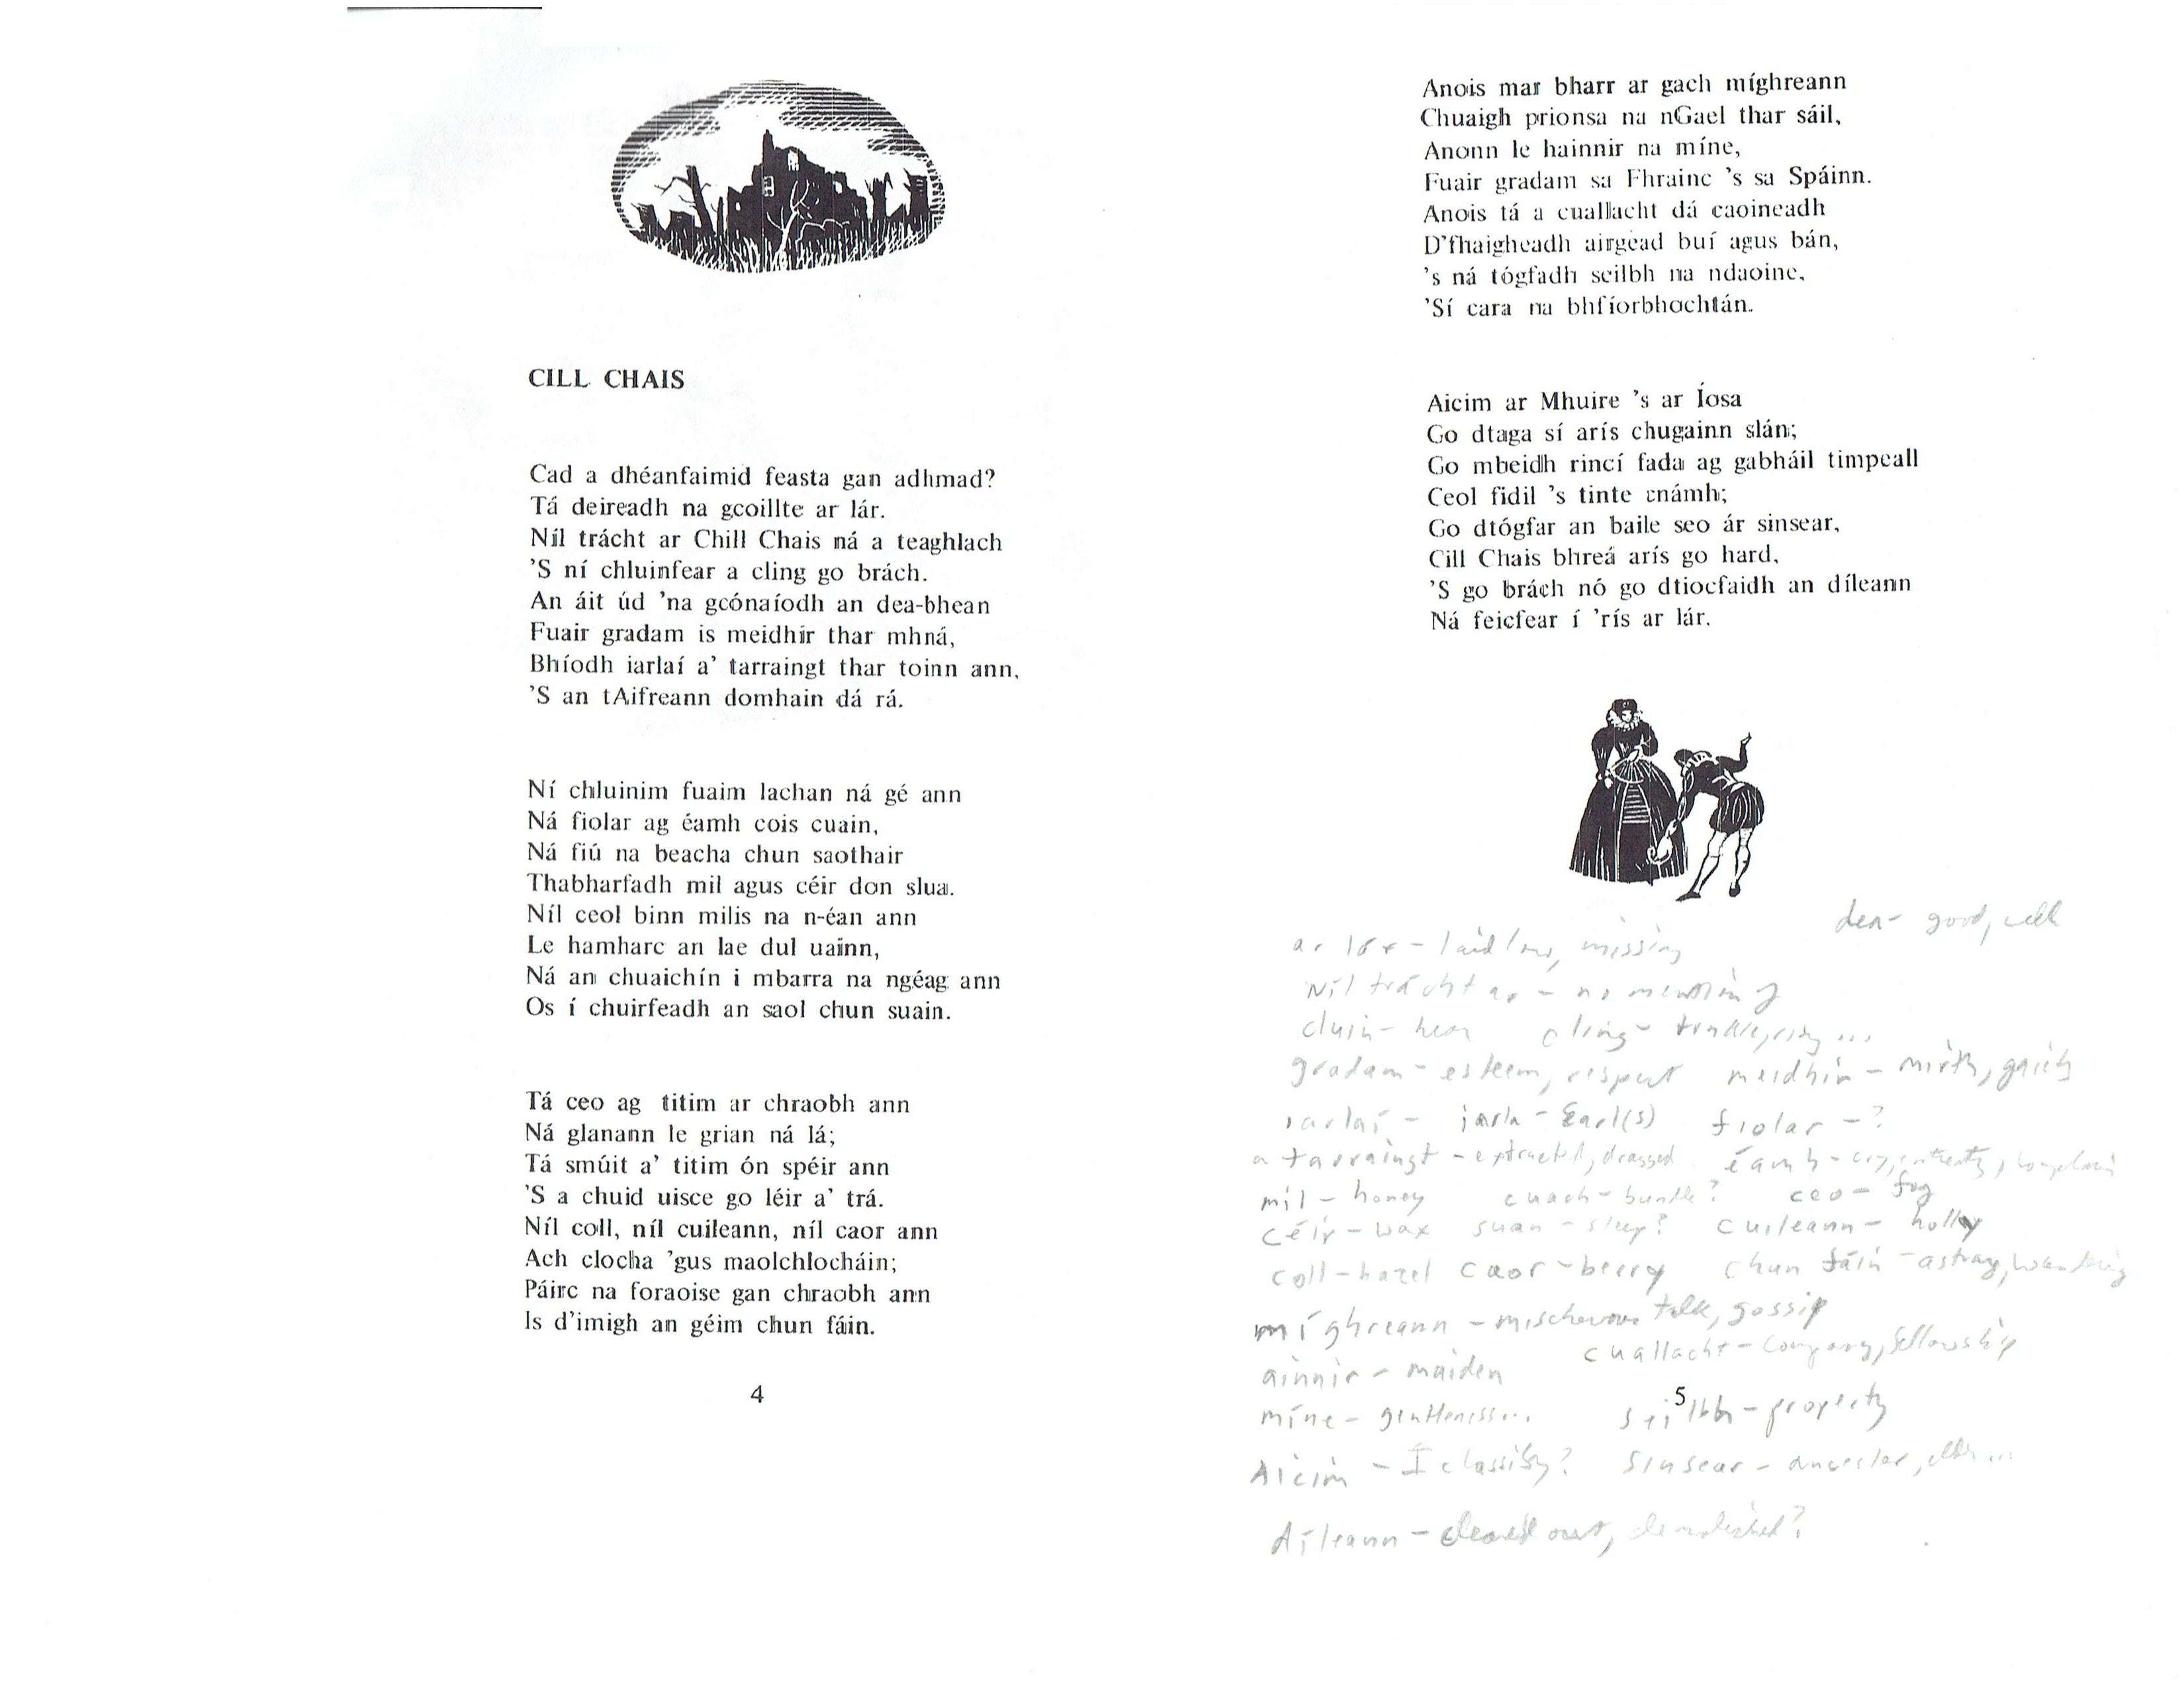 CILL CHAIS
Cad a dhéanfaimid feasta gan adhmad?
Tá deireadh na gcoillte ar lár.
Níl trácht ar Chill Chais ná a teaghlach
'S ní chluinfear a cling go brách.
An áit úd 'na gcónaíodh an dea-bhean
Fuair gradam is meidhir thar mhná,
Bhíodh iarlaí a' tarraingt thar toinn ann,
'S an tAifreann domhain dá rá.
Ní chluinim fuaim lachan ná gé ann
Ná fiolar ag éamh cois cuain,
Ná fiú na beacha chun saothair
Thabharfadh mil agus céir don slua.
Níl ceol binn milis na n-éan ann
Le hamharc an lae dul uainn,
Ná an chuaichín i mbarra na ngéag ann
Os í chuirfeadh an saol chun suain.
Tá ceo ag titim ar chraobh ann
Ná glanann le grian ná lá;
Tá smúit a' titim ón spéir ann
'S a chuid uisce go léir a' trá.
Níl coll, níl cuileann, níl caor ann
Ach clocha 'gus maolchlocháin;
Páirc na foraoise gan chraobh ann
Is d'imigh an géim chun fáin.
4
Anois mar bharr ar gach míghreann
Chuaigh prionsa na nGael thar sáil,
Anonn le hainnir na míne,
Fuair gradam sa Fhrainc 's sa Spáinn.
Anois tá a cuallacht dá caoineadh
D'fhaigheadh airgead buí agus bán,
's ná tógfadh seilbh na ndaoine,
'Sí cara na bhfíorbhochtán.
Aicim ar Mhuire 's ar Íosa
Go dtaga sí arís chugainn slán;
Go mbeidh rincí fada ag gabháil timpeall
Ceol fidil 's tinte cnámh;
Go dtógfar an baile seo ár sinsear,
Cill Chais bhreá arís go hard,
'S go brách nó go dtiocfaidh an díleann
Ná feicfear í 'rís ar lár.
dea- good, well
ar lár - laid low, missing
Níl trácht ar - no mention of
cluin - hear cling - tinkle, ring ...
gradam - esteem, respect meidhir - mirth, gaiety
iarlaí - iarla - Earl(s) fiolar - ?
a tarraingt - extracted, dragged éamh - cry, entreaty, complain
mil - honey cuach - bundle? ceo - fog
céir - wax suan - sleep? cuileann - holly
coll - hazel caor - berry chun fáin - astray, wandering
míghreann - mischevous talk, gossip
cuallacht - company, fellowship
ainnir - maiden
míne - gentleness...
5
seilbh - property
Aicim - I classify? sinsear - ancestor, elder ...
díleann - cleared out, demolished?